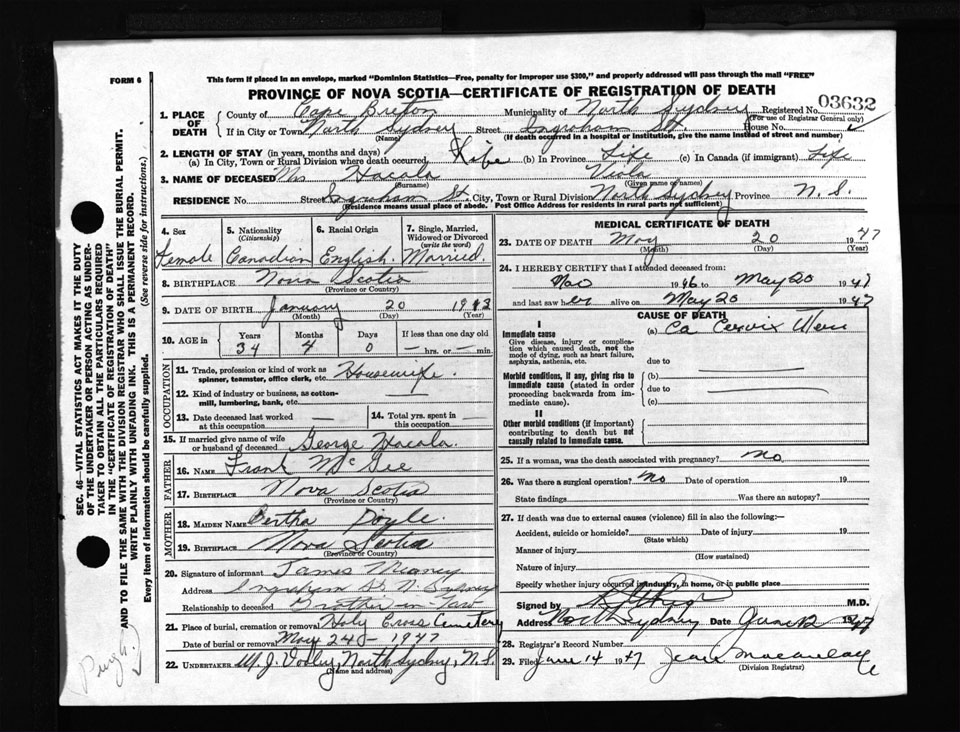 FORM 6
This form if placed in an envelope, marked "Dominion Statistics—Free, penalty for improper use $300," and properly addressed will pass through the mail "FREE"
PROVINCE OF NOVA SCOTIA—CERTIFICATE OF REGISTRATION OF DEATH
1. PLACE OF DEATH County of Cape Breton Municipality of North Sydney Registered No. 03632
(For use of Registrar General only)
If in City or Town North Sydney Street Ingraham St. House No.
(Name) (If death occurred in a hospital or institution, give the name instead of street and number)
2. LENGTH OF STAY (in years, months and days)
(a) In City, Town or Rural Division where death occurred, Life (b) in Province Life (c) in Canada (if immigrant) Life
3. NAME OF DECEASED Mrs Hacala Viola
(Surname) (Given name or names)
RESIDENCE No. Street Ingraham St. City, Town or Rural Division North Sydney Province N. S.
(Residence means usual place of abode. Post Office Address for residents in rural parts not sufficient)
4. Sex Female
5. Nationality (Citizenship) Canadian
6. Racial Origin English.
7. Single, Married, Widowed or Divorced (write the word) Married.
8. BIRTHPLACE Nova Scotia
(Province or Country)
9. DATE OF BIRTH January 20 1913
(Month) (Day) (Year)
10. AGE in Years Months Days If less than one day old
34 4 0 — hrs. or — min.
OCCUPATION
11. Trade, profession or kind of work as spinner, teamster, office clerk, etc. Housewife.
12. Kind of industry or business, as cotton-mill, lumbering, bank, etc.
13. Date deceased last worked at this occupation —
14. Total yrs. spent in this occupation —
15. If married give name of wife or husband of deceased George Hacala.
FATHER
16. NAME Frank McGee
17. BIRTHPLACE Nova Scotia
(Province or Country)
MOTHER
18. MAIDEN NAME Bertha Doyle.
19. BIRTHPLACE Nova Scotia
(Province or Country)
20. Signature of informant James
Address Ingraham St. N. Sydney
Relationship to deceased Brother-in-law
21. Place of burial, cremation or removal Holy Cross Cemetery
Date of burial or removal May 24 - 1947
22. UNDERTAKER W. J. Dooley, North Sydney, N. S.
(Name and address)
MEDICAL CERTIFICATE OF DEATH
23. DATE OF DEATH May 20 1947
(Month) (Day) (Year)
24. I HEREBY CERTIFY that I attended deceased from:
1946 to May 20 1947
and last saw her alive on May 20 1947
CAUSE OF DEATH
I
Immediate cause
Give disease, injury or complication which caused death, not the mode of dying, such as heart failure, asphyxia, asthenia, etc.
(a) Ca Cervix
due to
Morbid conditions, if any, giving rise to immediate cause (stated in order proceeding backwards from immediate cause).
(b)
due to
(c)
II
Other morbid conditions (if important) contributing to death but not causally related to immediate cause.
25. If a woman, was the death associated with pregnancy? No.
26. Was there a surgical operation? No Date of operation 19
State findings Was there an autopsy?
27. If death was due to external causes (violence) fill in also the following:—
Accident, suicide or homicide? Date of injury 19
(State which)
Manner of injury
(How sustained)
Nature of injury
Specify whether injury occurred in industry, in home, or in public place
Signed by M.D.
Address North Sydney Date June 12 1947
28. Registrar's Record Number
29. Filed June 14 1947 Jean
(Division Registrar)
SEC. 46—VITAL STATISTICS ACT MAKES IT THE DUTY
OF THE UNDERTAKER OR PERSON ACTING AS UNDER-
TAKER TO OBTAIN ALL THE PARTICULARS REQUIRED
IN THE "CERTIFICATE OF REGISTRATION OF DEATH"
AND TO FILE THE SAME WITH THE DIVISION REGISTRAR WHO SHALL ISSUE THE BURIAL PERMIT.
WRITE PLAINLY WITH UNFADING INK. THIS IS A PERMANENT RECORD.
Every item of information should be carefully supplied. (See reverse side for instructions.)